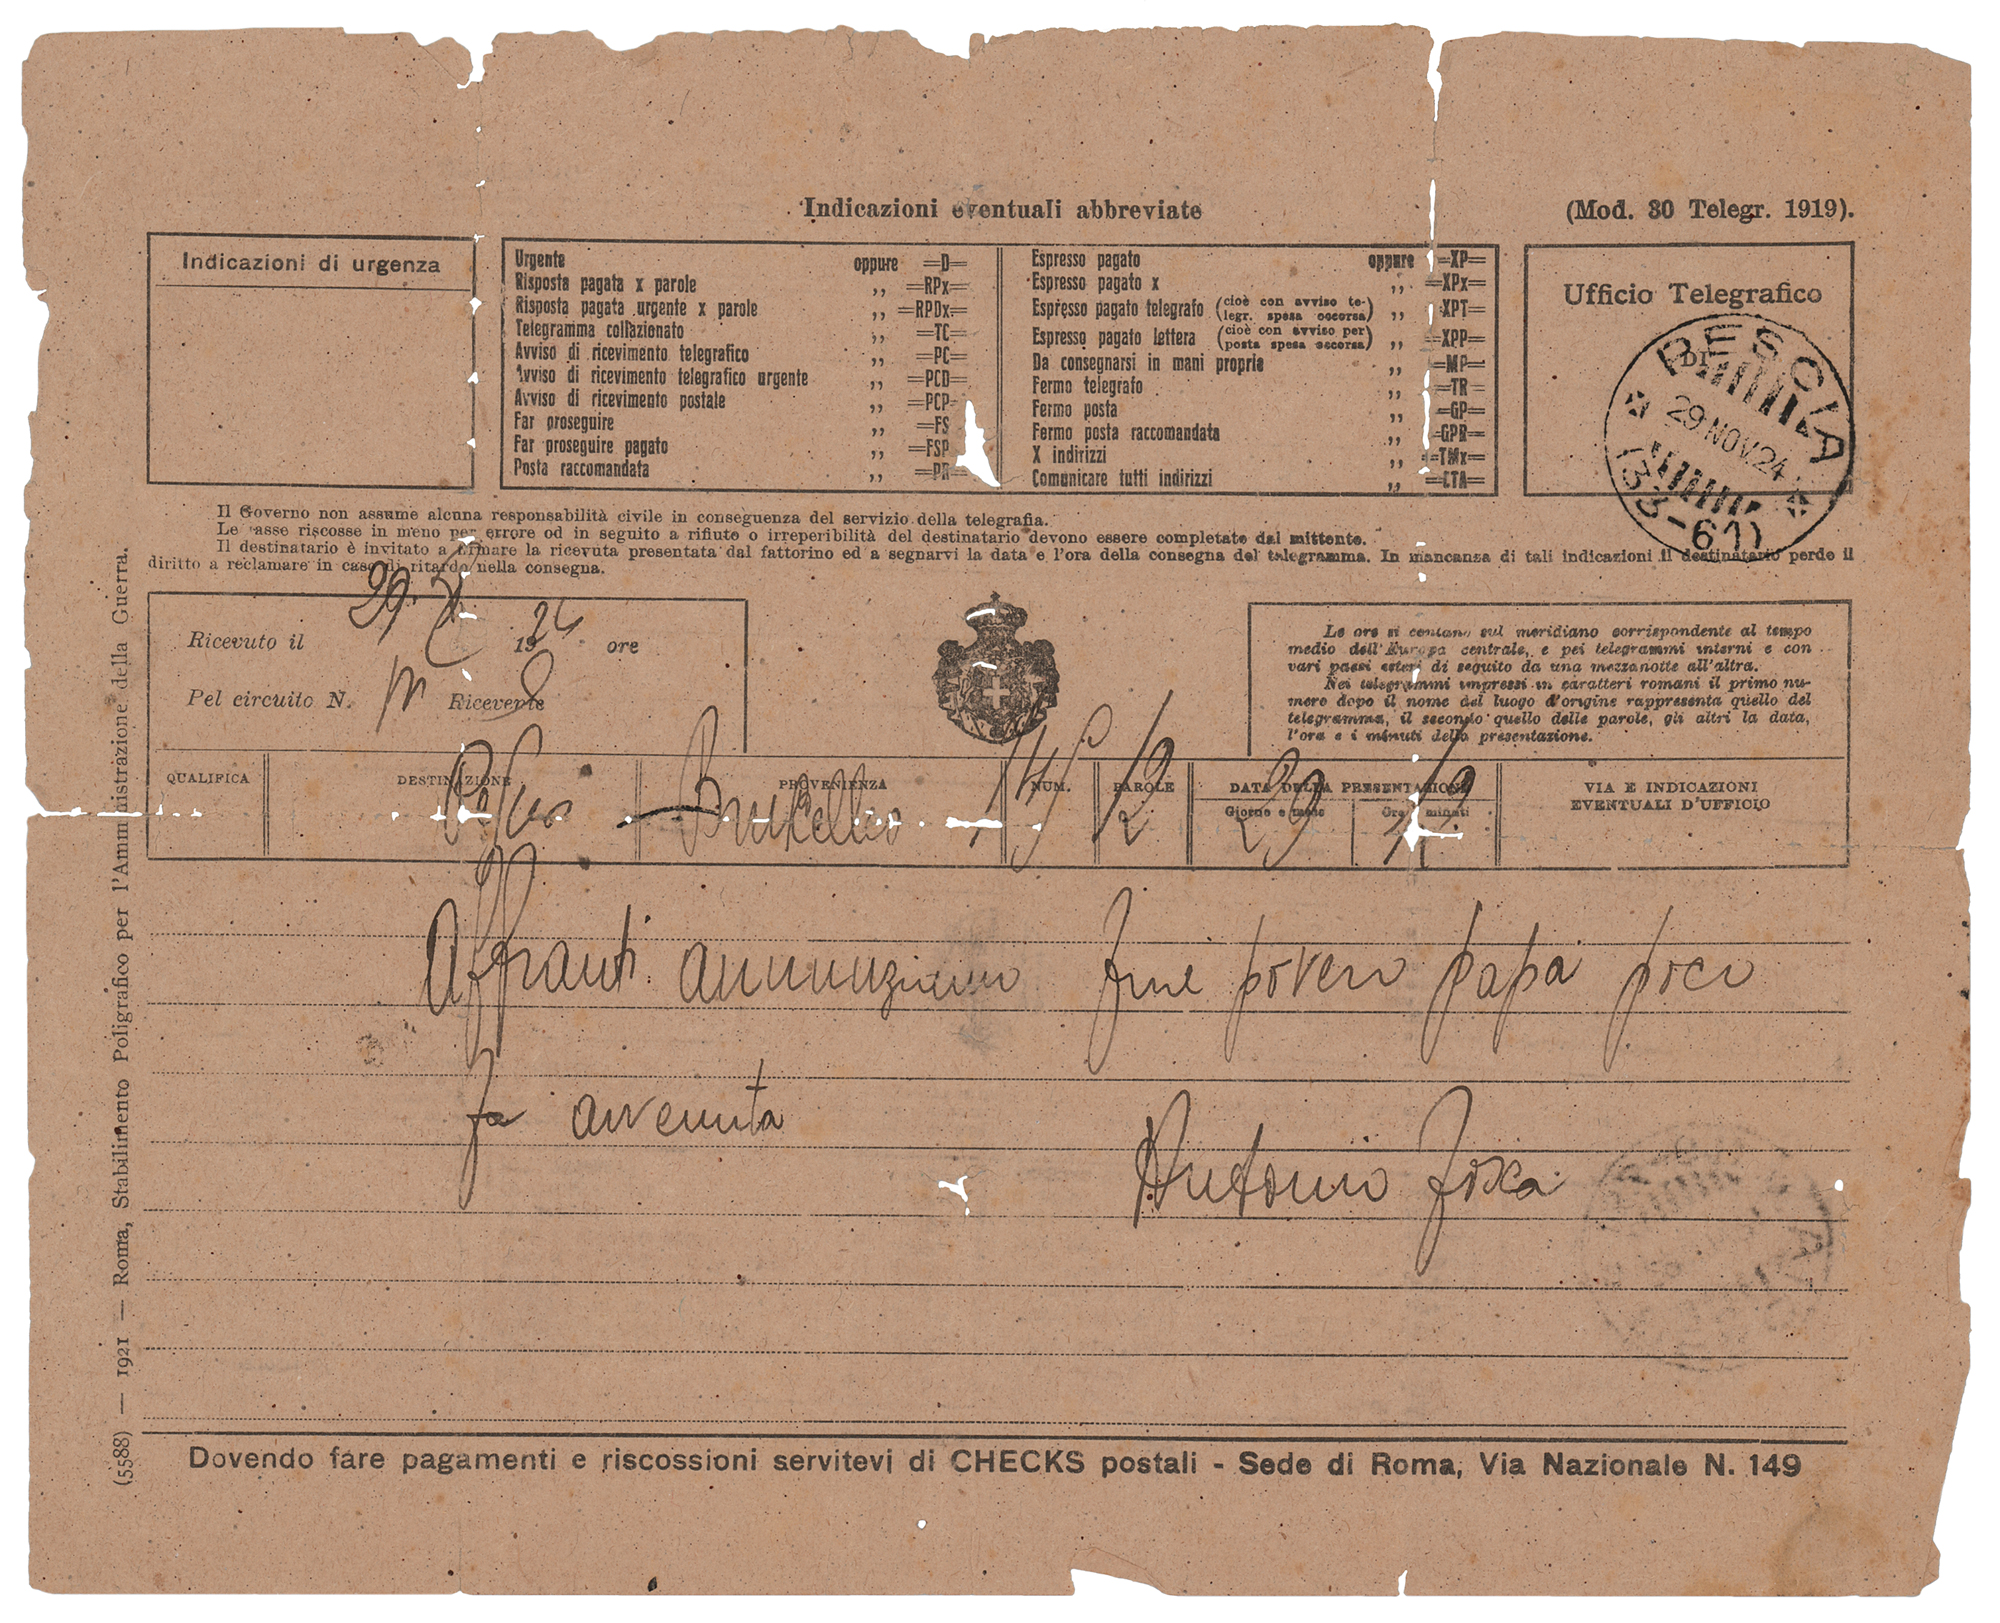 Indicazioni eventuali abbreviate
(Mod. 30 Telegr. 1919).
Indicazioni di urgenza
Urgente oppure =D=
Risposta pagata x parole ,, =RPx=
Risposta pagata urgente x parole ,, =RPDx=
Telegramma collazionato ,, =TC=
Avviso di ricevimento telegrafico ,, =PC=
Avviso di ricevimento telegrafico urgente ,, =PCD=
Avviso di ricevimento postale ,, =PCP=
Far proseguire ,, =FS
Far proseguire pagato ,, =FSP
Posta raccomandata ,, =PR=
Espresso pagato oppure =XP=
Espresso pagato x ,, =XPx=
Espresso pagato telegrafo (cioè con avviso telegr. spesa occorsa) ,, XPT=
Espresso pagato lettera (cioè con avviso per posta spesa occorsa) ,, =XPP=
Da consegnarsi in mani proprie ,, =MP=
Fermo telegrafo ,, =TR=
Fermo posta ,, =GP=
Fermo posta raccomandata ,, =GPR=
X indirizzi ,, =TMx=
Comunicare tutti indirizzi ,, =CTA=
Ufficio Telegrafico
DI
PESCIA
29 NOV 24
(33-61)
Il Governo non assume alcuna responsabilità civile in conseguenza del servizio della telegrafia.
Le asse riscosse in meno per errore od in seguito a rifiuto o irreperibilità del destinatario devono essere completate dal mittente.
Il destinatario è invitato a firmare la ricevuta presentata dal fattorino ed a segnarvi la data e l'ora della consegna del telegramma. In mancanza di tali indicazioni il destinatario perde il
diritto a reclamare in caso di ritardo nella consegna.
Ricevuto il 29 1924 ore
Pel circuito N. Ricevente
Le ore si contano sul meridiano corrispondente al tempo
medio dell'Europa centrale, e pei telegrammi interni e con
vari paesi esteri di seguito da una mezzanotte all'altra.
Nei telegrammi impressi in caratteri romani il primo nu-
mero dopo il nome del luogo d'origine rappresenta quello del
telegramma, il secondo quello delle parole, gli altri la data,
l'ora e i minuti della presentazione.
QUALIFICA
DESTINAZIONE
PROVENIENZA
NUM.
PAROLE
DATA DELLA PRESENTAZIONE
Giorno e mese
Ore e minuti
VIA E INDICAZIONI
EVENTUALI D'UFFICIO
Pescia Bruxelles 12 29
Affranti annunziamo fine povero papà poco
fa avvenuta
Antonio Fosca
Dovendo fare pagamenti e riscossioni servitevi di CHECKS postali - Sede di Roma, Via Nazionale N. 149
(5588) — 1921 — Roma, Stabilimento Poligrafico per l'Amministrazione della Guerra.